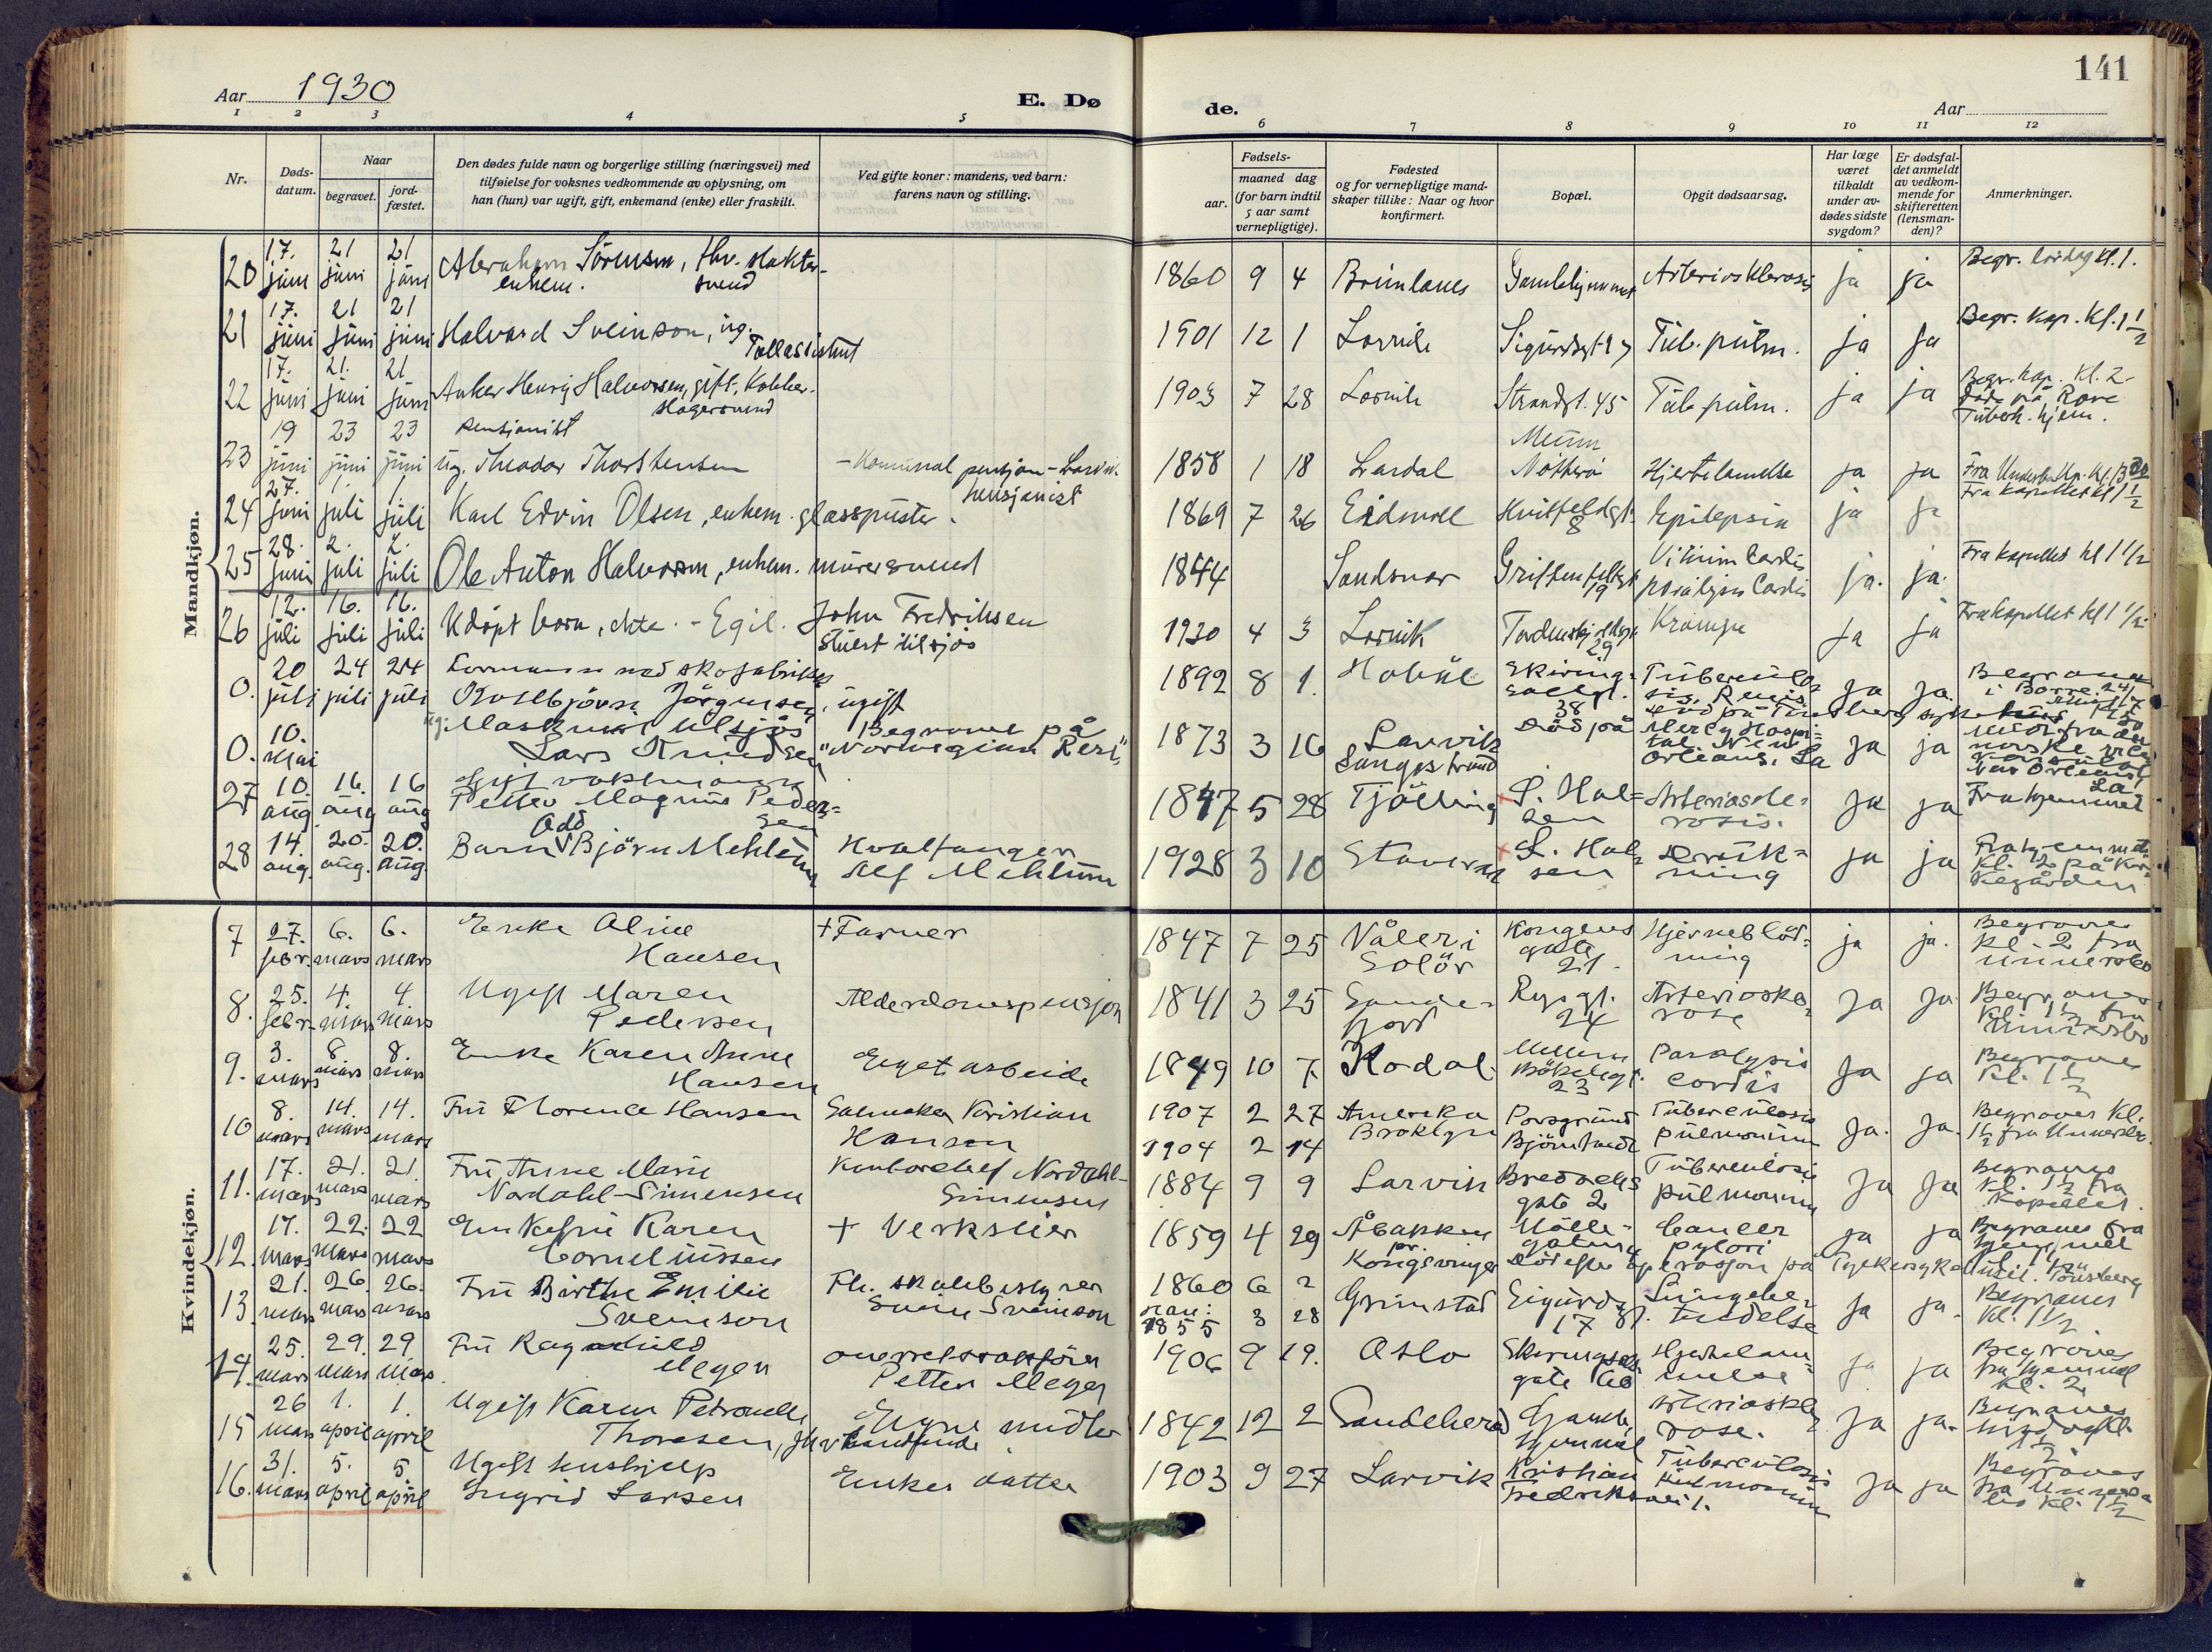 141
Aar 1930
E. Dø
de.
Aar
1 2 3 4 5
6 7 8 9 10 11 12
Nr.
Døds-
datum.
Naar
begravet.
jord-
fæstet.
Den dødes fulde navn og borgerlige stilling (næringsvei) med
tilføielse for voksnes vedkommende av oplysning, om
han (hun) var ugift, gift, enkemand (enke) eller fraskilt.
Ved gifte koner: mandens, ved barn:
farens navn og stilling.
Fødsels-
aar.
maaned dag
(for barn indtil
5 aar samt
vernepligtige).
Fødested
og for vernepligtige mand-
skaper tillike: Naar og hvor
konfirmert.
Bopæl.
Opgit dødsaarsag.
Har læge
været
tilkaldt
under av-
dødes sidste
sygdom?
Er dødsfal-
det anmeldt
av vedkom-
mende for
skifteretten
(lensman-
den)?
Anmerkninger.
Mandkjøn.
20 17. juni 21 juni 21 juni Abraham Sörensen, fhv. slakter-
svend enkem. 1860 9 4 Brunlanes Arteriosklerosis ja ja Begr. lördag kl. 1.
21 17. juni 21 juni 21 juni Halvard Sveinson, ug.
Tollassistent 1901 12 1 Larvik Sigurdsgt 17 Tub. pulm. ja ja Begr. kap. kl. 1 1/2
22 17. juni 21. juni 21 juni Anker Henry Halvorsen, gift, Kobber-
slagersvend 1903 7 28 Larvik Strandgt. 45 Tub. pulm. ja ja Begr. kap. kl. 2
död på Rove
Tuberk. hjem.
23 19 juni 23 juni 23 juni pensjonist
ug. Theodor Thorstensen - Komunal pensjon - Larvik
pensjonist 1858 1 18 Lardal Nötterö Hjertelamelse ja ja
24 27. juni 1. juli 1. juli Karl Edvin Olsen, enkem. glasspuster. 1869 7 26 Eidsvoll Hvitfeldtgt. 8 Epilepsia ja ja Fra kapellet kl 1 1/2
25 28. juni 2. juli 2. juli Ole Anton Halvorsen, enkem. murersvend 1844 Sandsvær Griffenfeldtgt 19 Vitium Cordis
paralysis Cordis ja. ja. Fra kapellet kl 1 1/2
26 12. juli 16. juli 16. juli Udöpt barn, ekte. - Egil. John Fredriksen
stuert tilsjös 1930 4 3 Larvik Tordenskjoldsgt 29 Krampe ja ja Fra kapellet kl 1 1/2
0. 20 juli 24 juli 24 juli Formann ved skofabrikk
Kolbjörn Jörgensen, ugift 1892 8 1. Skirings-
salgt. 38 Tuberkulo-
sis Renis ja ja. Begraves
i Borre 24/7
0. 10. mai ug. Maskinist tilsjös
Lars Knudsen Begravet på
"Norwegian Rest" 1873 3 16 Larvik
Langestrand Död på Mercy Hospi-
tal. New
Orleans, La ja ja
27 10. aug 16. aug 16 aug Gift vaktmann
Petter Magnus Peder-
sen 1847 5 28 Tjölling S. Hal-
sen Arteriosle-
rosis. ja ja Fra hjemmet
28 14. aug. 20. aug. 20. aug. Barn Odd Björn Mehlum Hvalfanger
Alf Mehlum 1928 3 10 Stavern S. Hal-
sen Druk-
ning ja ja Fra hjemmet
kl. 2 på Kir-
kegården
Kvindekjøn.
7 27. febr. 6. mars 6. mars Enke Aline
Hansen + Farver 1847 7 25 Våler i
Solör Kongens
gate 21. Hjerneblöd-
ning ja ja. Begraves
kl. 2 fra
8. 25. febr. 4. mars 4. mars Ugift Maren
Pedersen Alderdomspensjon 1841 3 25 Sande-
fjord 24 Arterioskle-
rose ja ja Begraves
kl. 1 1/2 fra
9. 3. mars 8. mars 8. mars Enke Karen Anne
Hansen Eget arbeide 1849 10 7. Kodal Mellem
Bökeligt.
23 Paralysis
cordis ja ja Begraves
kl. 1 1/2
10 8. mars 14. mars 14. mars Fru Florence Hansen Salmaker Kristian
Hansen 1907 2 27 Amerika
Broklyn
1904 2 14 Porsgrund Tuberculosis
pulmonum ja. ja. Begraves kl.
1 1/2 fra
11. 17. mars 21. mars 21. mars Fru Anne Marie
Nordahl-Simensen Kontorchef Nordahl-
Simensen 1884 9 9 Larvik Bredochs
gate 2 Tuberculosis
pulmonum ja ja Begraves
kl. 1 1/2 fra
kapellet.
12. 17. mars 22. mars 22 mars Enkefru Karen
Corneliussen + Verkseier 1859 4 29 Åbakken
pr. Kongsvinger Mölle-
gaten Cancer
pylori ja ja Begraves fra
hjemmet
13 21. mars 26 mars 26. mars Fru Birthe Emilie
Sveinson Fh. skolebestyrer
Svein Sveinson 1860 6 2
man:
1855 3 28 Grimstad Sigurds
17 gt. Lungebe-
tendelse ja ja. Begraves
kl. 1 1/2
14. 25. mars 29. mars 29 mars Fru Ragnhild
Meyer overretssakförer
Petter Meyer 1906 9 19. Oslo Skiringssals
gate Hjertelam-
melse ja ja Begraves
fra hjemmet
kl. 2
15 26 mars 1. april 1. april Ugift Karen Petronelle
Thoresen, Egne midler 1842 12 2 Sandeherad Gamle
hjemmet Arterioskle-
rose. ja ja. Begraves
16. 31. mars 5. april 5 april Ugift hushjelp
Ingrid Larsen Enkes datter 1903 9 27 Larvik Kristian
Fredriksvei 1. Tuberculosis
pulmonum ja ja Begraves
kl. 1 1/2